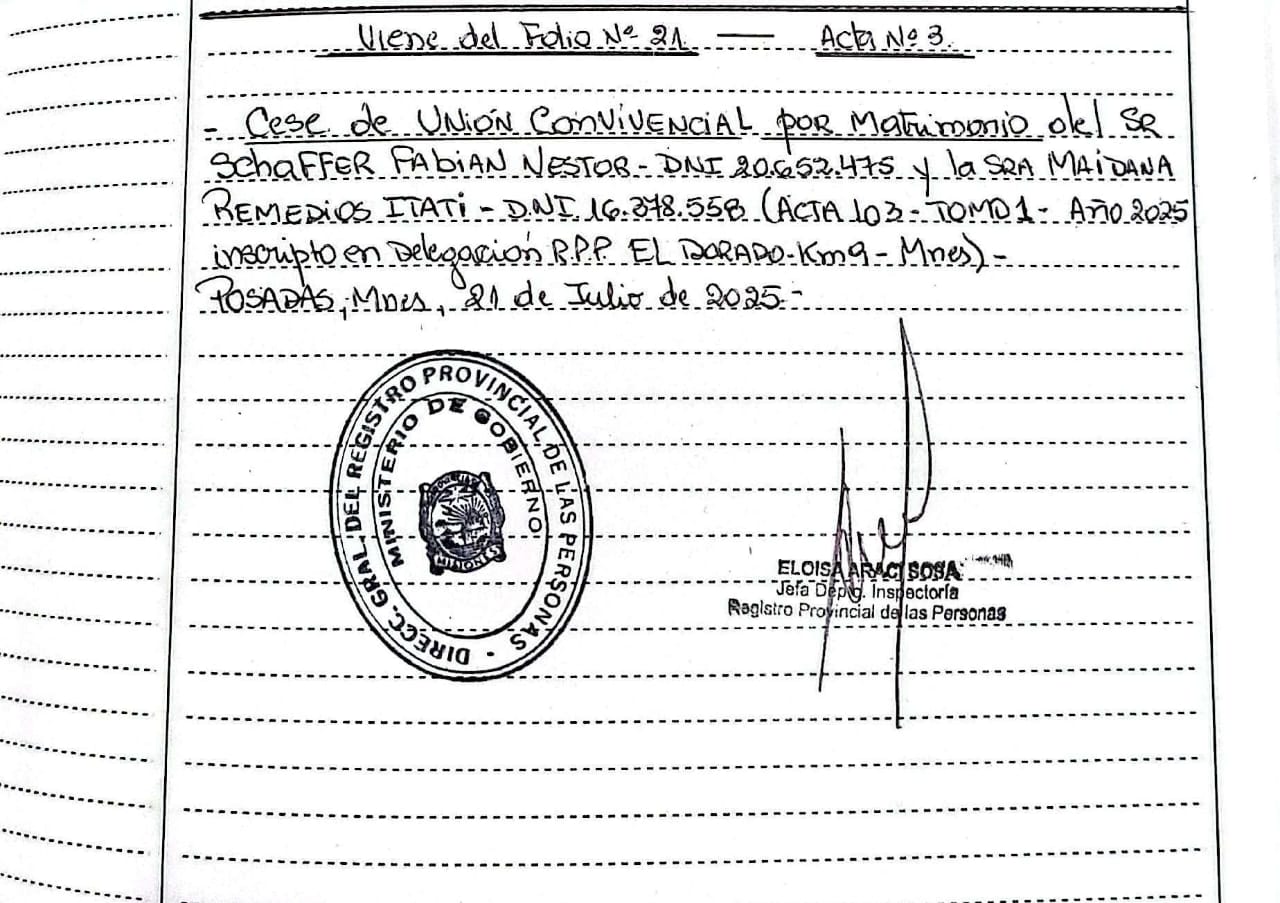 Viene del Folio Nº 21. — Acta Nº 3.
- Cese de UNIÓN CONVIVENCIAL por Matrimonio del SR
SCHAFFER FABIAN NESTOR - DNI 20.652.475 y la SRA MAIDANA
REMEDIOS ITATI - D.NI. 16.378.558 (ACTA 103 - TOMO 1 - Año 2025
inscripto en Delegación R.P.P. EL DORADO - Km 9 - Mnes) -
POSADAS, Mnes, 21 de Julio de 2025.-
DIRECC. GRAL. DEL REGISTRO PROVINCIAL DE LAS PERSONAS -
MINISTERIO DE GOBIERNO
MISIONES
ELOISA ARACI SOSA
Jefa Dptg. Inspectoría
Registro Provincial de las Personas